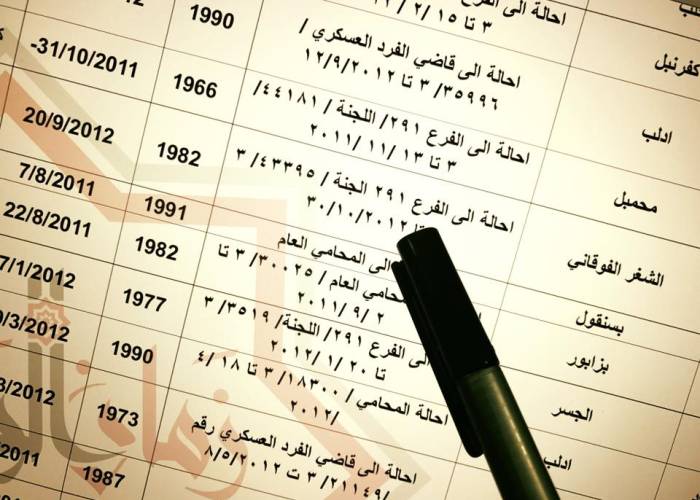 1990
احالة الى الفرع
٣ تا ١٥ /٢ /
كفرنبل
-31/10/2011
احالة الى قاضي الفرد العسكري /
٣٥٩٩٦/ ٣ تا ١٢/٩/٢٠١٢
ادلب
20/9/2012
1966
احالة الى الفرع ٢٩١/ اللجنة /٤٤١٨١/
٣ تا ١٣ /١١ /٢٠١١
محمبل
7/8/2011
1982
احالة الى الفرع ٢٩١ الجنة / ٤٣٣٩٥/ ٣
٣٠/١٠/٢٠١٢
الشغر الفوقاني
22/8/2011
1991
الى المحامي العام
بسنقول
7/1/2012
1982
المحامي العام / ٣٠٠٢٥/ ٣ تا
٢ /٩ /٢٠١١
بزابور
9/3/2012
1977
الى الفرع ٢٩١/ اللجنة/ ٣٥١٩/ ٣
تا ٢٠ /١ /٢٠١٢
الجسر
3/2012
1990
احالة المحامي /١٨٣٠٠/ ٣ تا ١٨ /٤
/٢٠١٢
ادلب
2011
1973
احالة الى قاضي الفرد العسكري رقم
/٢١١٤٩/ ٣ ت ٨/٥/٢٠١٢
1987